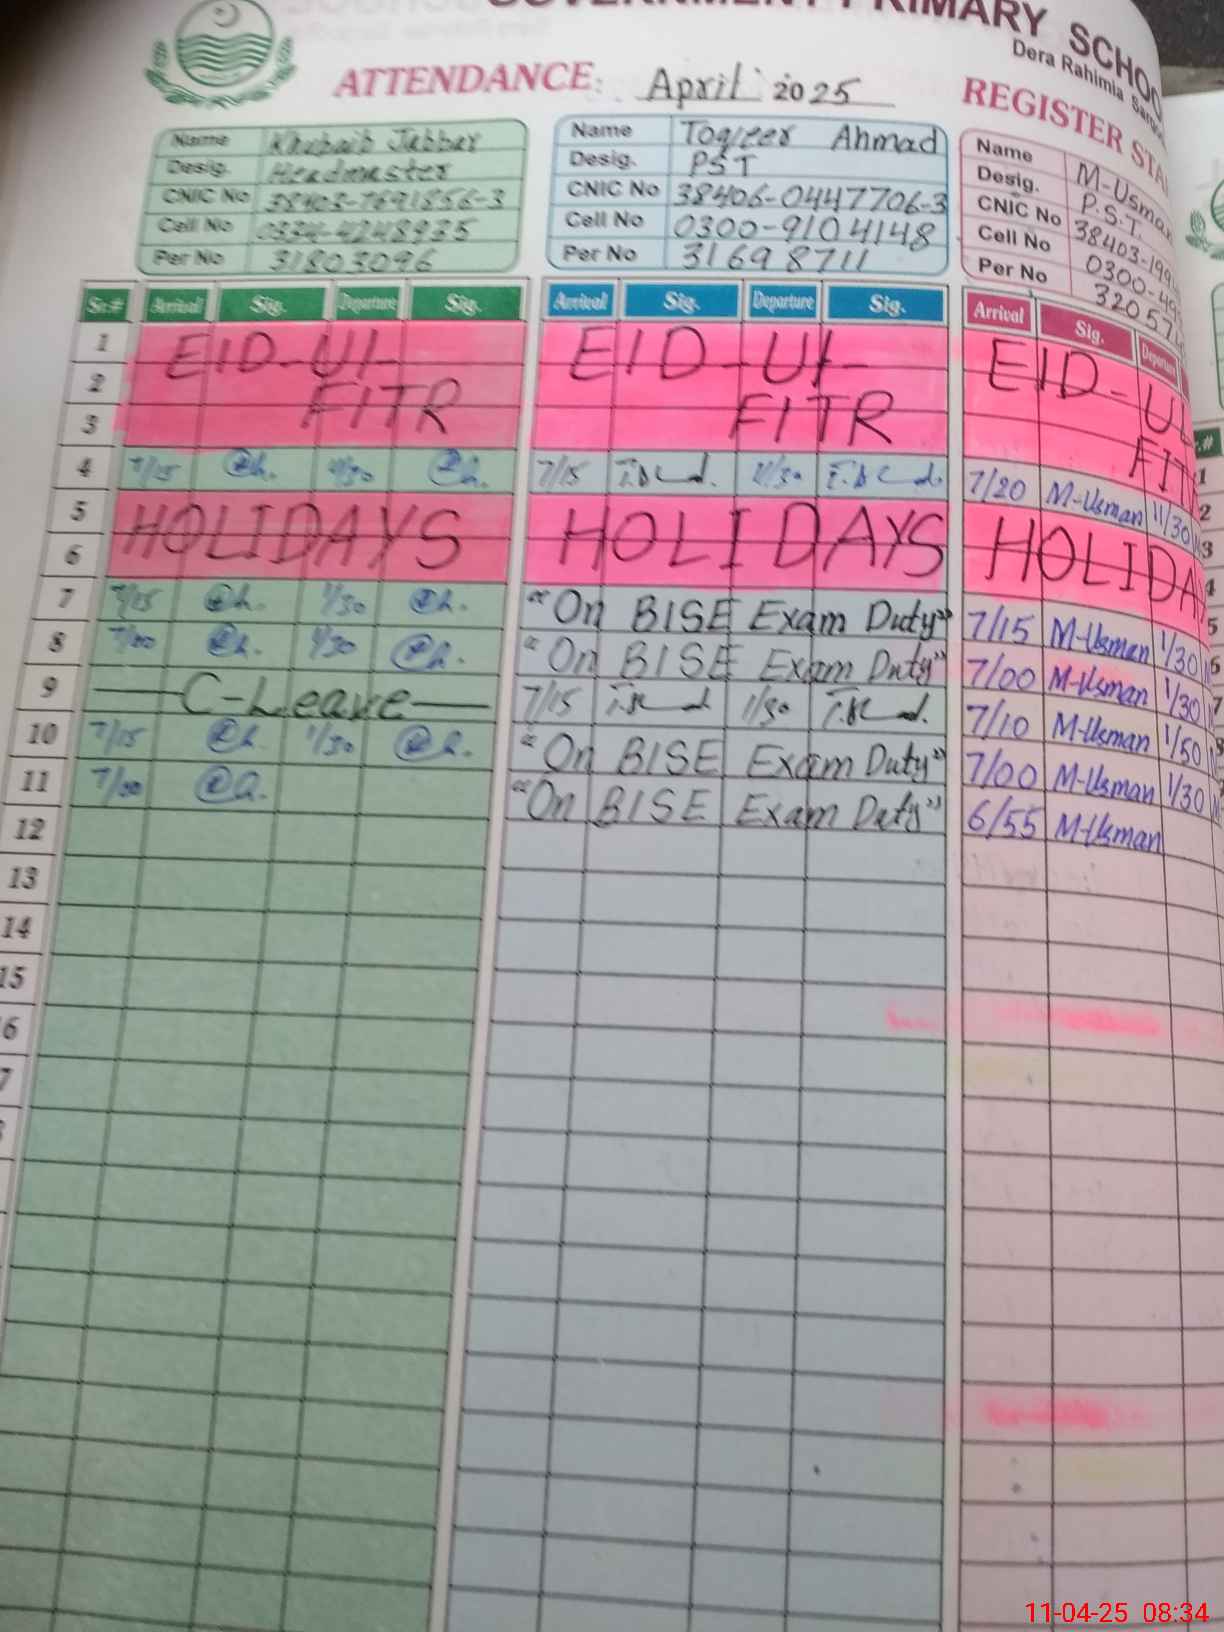 GOVERNMENT PRIMARY SCHOO
Dera Rahimia
ATTENDANCE: April 2025
REGISTER STA
Name Khubaib Jabbar
Desig. Headmaster
CNIC No 38403-7691856-3
Cell No
Per No 31803096
Name Toqeer Ahmad
Desig. PST
CNIC No 38406-0447706-3
Cell No 0300-9104148
Per No 31698711
Name M-Usman
Desig. P.S.T.
CNIC No 38403-199
Cell No 0300-49
Per No 32057
Sr.# Arrival Sig. Departure Sig. Arrival Sig. Departure Sig. Arrival Sig. Departure
1 EID-UL- EID-UL- EID-UL
2 FITR FITR FIT
3
4 7/15 7/15 11/30 7/20 M-Usman 11/30
5 HOLIDAYS HOLIDAYS HOLIDA
6
7 7/15 1/30 "On BISE Exam Duty" 7/15 M-Usman 1/30
8 7/00 1/30 "On BISE Exam Duty" 7/00 M-Usman 1/30
9 C-Leave 7/15 1/30 7/10 M-Usman 1/50
10 7/15 1/30 "On BISE Exam Duty" 7/00 M-Usman 1/30
11 7/00 "On BISE Exam Duty" 6/55 M-Usman
12
13
14
15
6
7
11-04-25 08:34